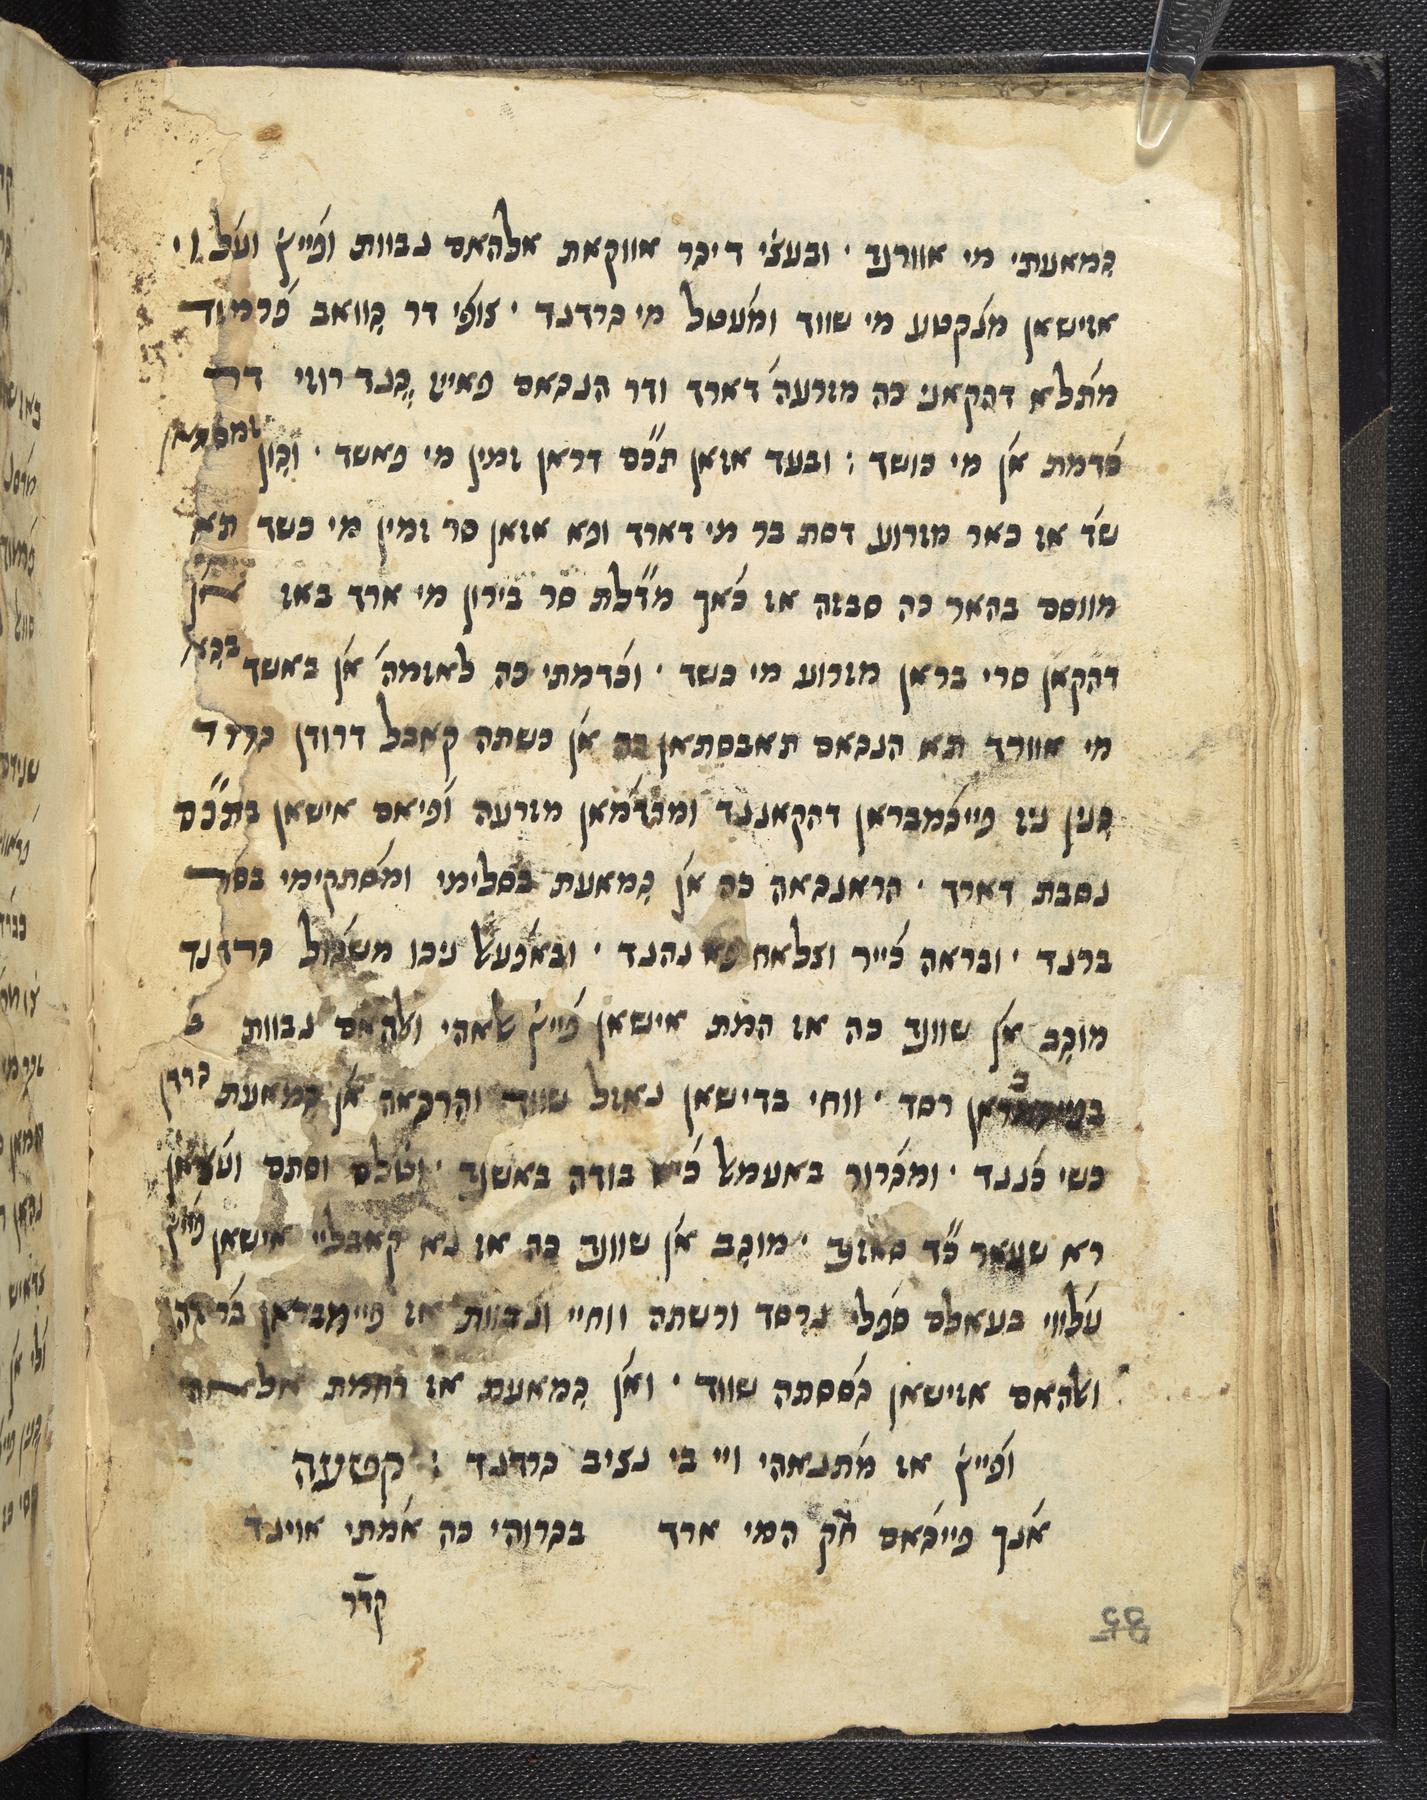 גמאעתי מי אוורנד ٠ ובעצ׳י דיגר אווקאת אלהאם נבוות ופ׳ייץ׳
אזישאן מנקטע מי שווד ומעטל מי גרדנד ٠ צופ׳י דר גוואב פרמוד
מתלא דהקאני כה מזרעה דארד ודר הנגאם פאיז גנד רוזי דר
כ׳דמת אן מי כושד : ובעד אזאן תכ״ם דראן זמין מי פאשד ٠ וגון זמסתאן
שד אז כאר מזרוע דסת בר מי דארד ופא אזאן סר זמין מי כשד תא
מווסם בהאר כה סבזה אז כ׳אך מד״לת סר בירון מי ארד באז אן
דהקאן סרי בראן מזרוע מי כשד ٠ וכ׳דמתי כה לאזמה׳ אן באשד בגא
מי אוורד תא הנגאם תאבסתאן כה אן כשתה קאבל דרודן גרדד
גנין ניז פייג׳מבראן דהקאננד ומרדמאן מזרעה ופ׳יאם אישאן בתכ״ם
נסבת דארד ٠ הראנגאה כה אן גמאעת בסלימי ומסתקימי בסר
ברנד ٠ ובראה כ׳ייר וצלאח פא נהנד ٠ ובאפעאל ניכו משג׳ול גרדנד
מוגב אן שוונד כה אז המת אישאן פ׳ייץ׳ אלאהי ואלהאם נבוות ב
רסד ٠ ווחי בדישאן נאזל שווד והרגאה אן גמאעת גרדן
כשי כננד ٠ ומג׳רור באעמאל כ׳יש בודה באשנד ٠ וט׳לם וסתם ועציאן
רא שעאר כ״ד סאזנד ٠ מוגב אן שוונד כה אז נא קאבליי אישאן פ׳ייץ׳
עלווי בעאלם ספלי נרסד ורשתה ווחיי ונבוות אז פיימבראן ברידה
ואלהאם אזישאן גססתה שווד ٠ ואן גמאעת אז רחמת אלאהי
ופ׳ייץ׳ אז מתנאהי ויי בי נציב גרדנד : קטעה
אנך פייג׳אם חק המי ארד בגרוהי כה אמתי אוינד
קדר
95